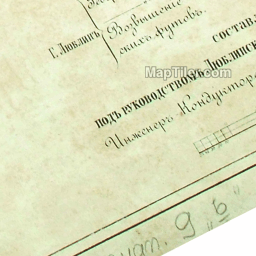 Г. Люблинъ
Возвышение
скихъ футовъ.
СОСТАВЛ
ПОДЪ РУКОВОДСТВОМЪ ЛЮБЛИНСК
Инженеръ Кондукторо
MapTiler.com
9 „Ь”